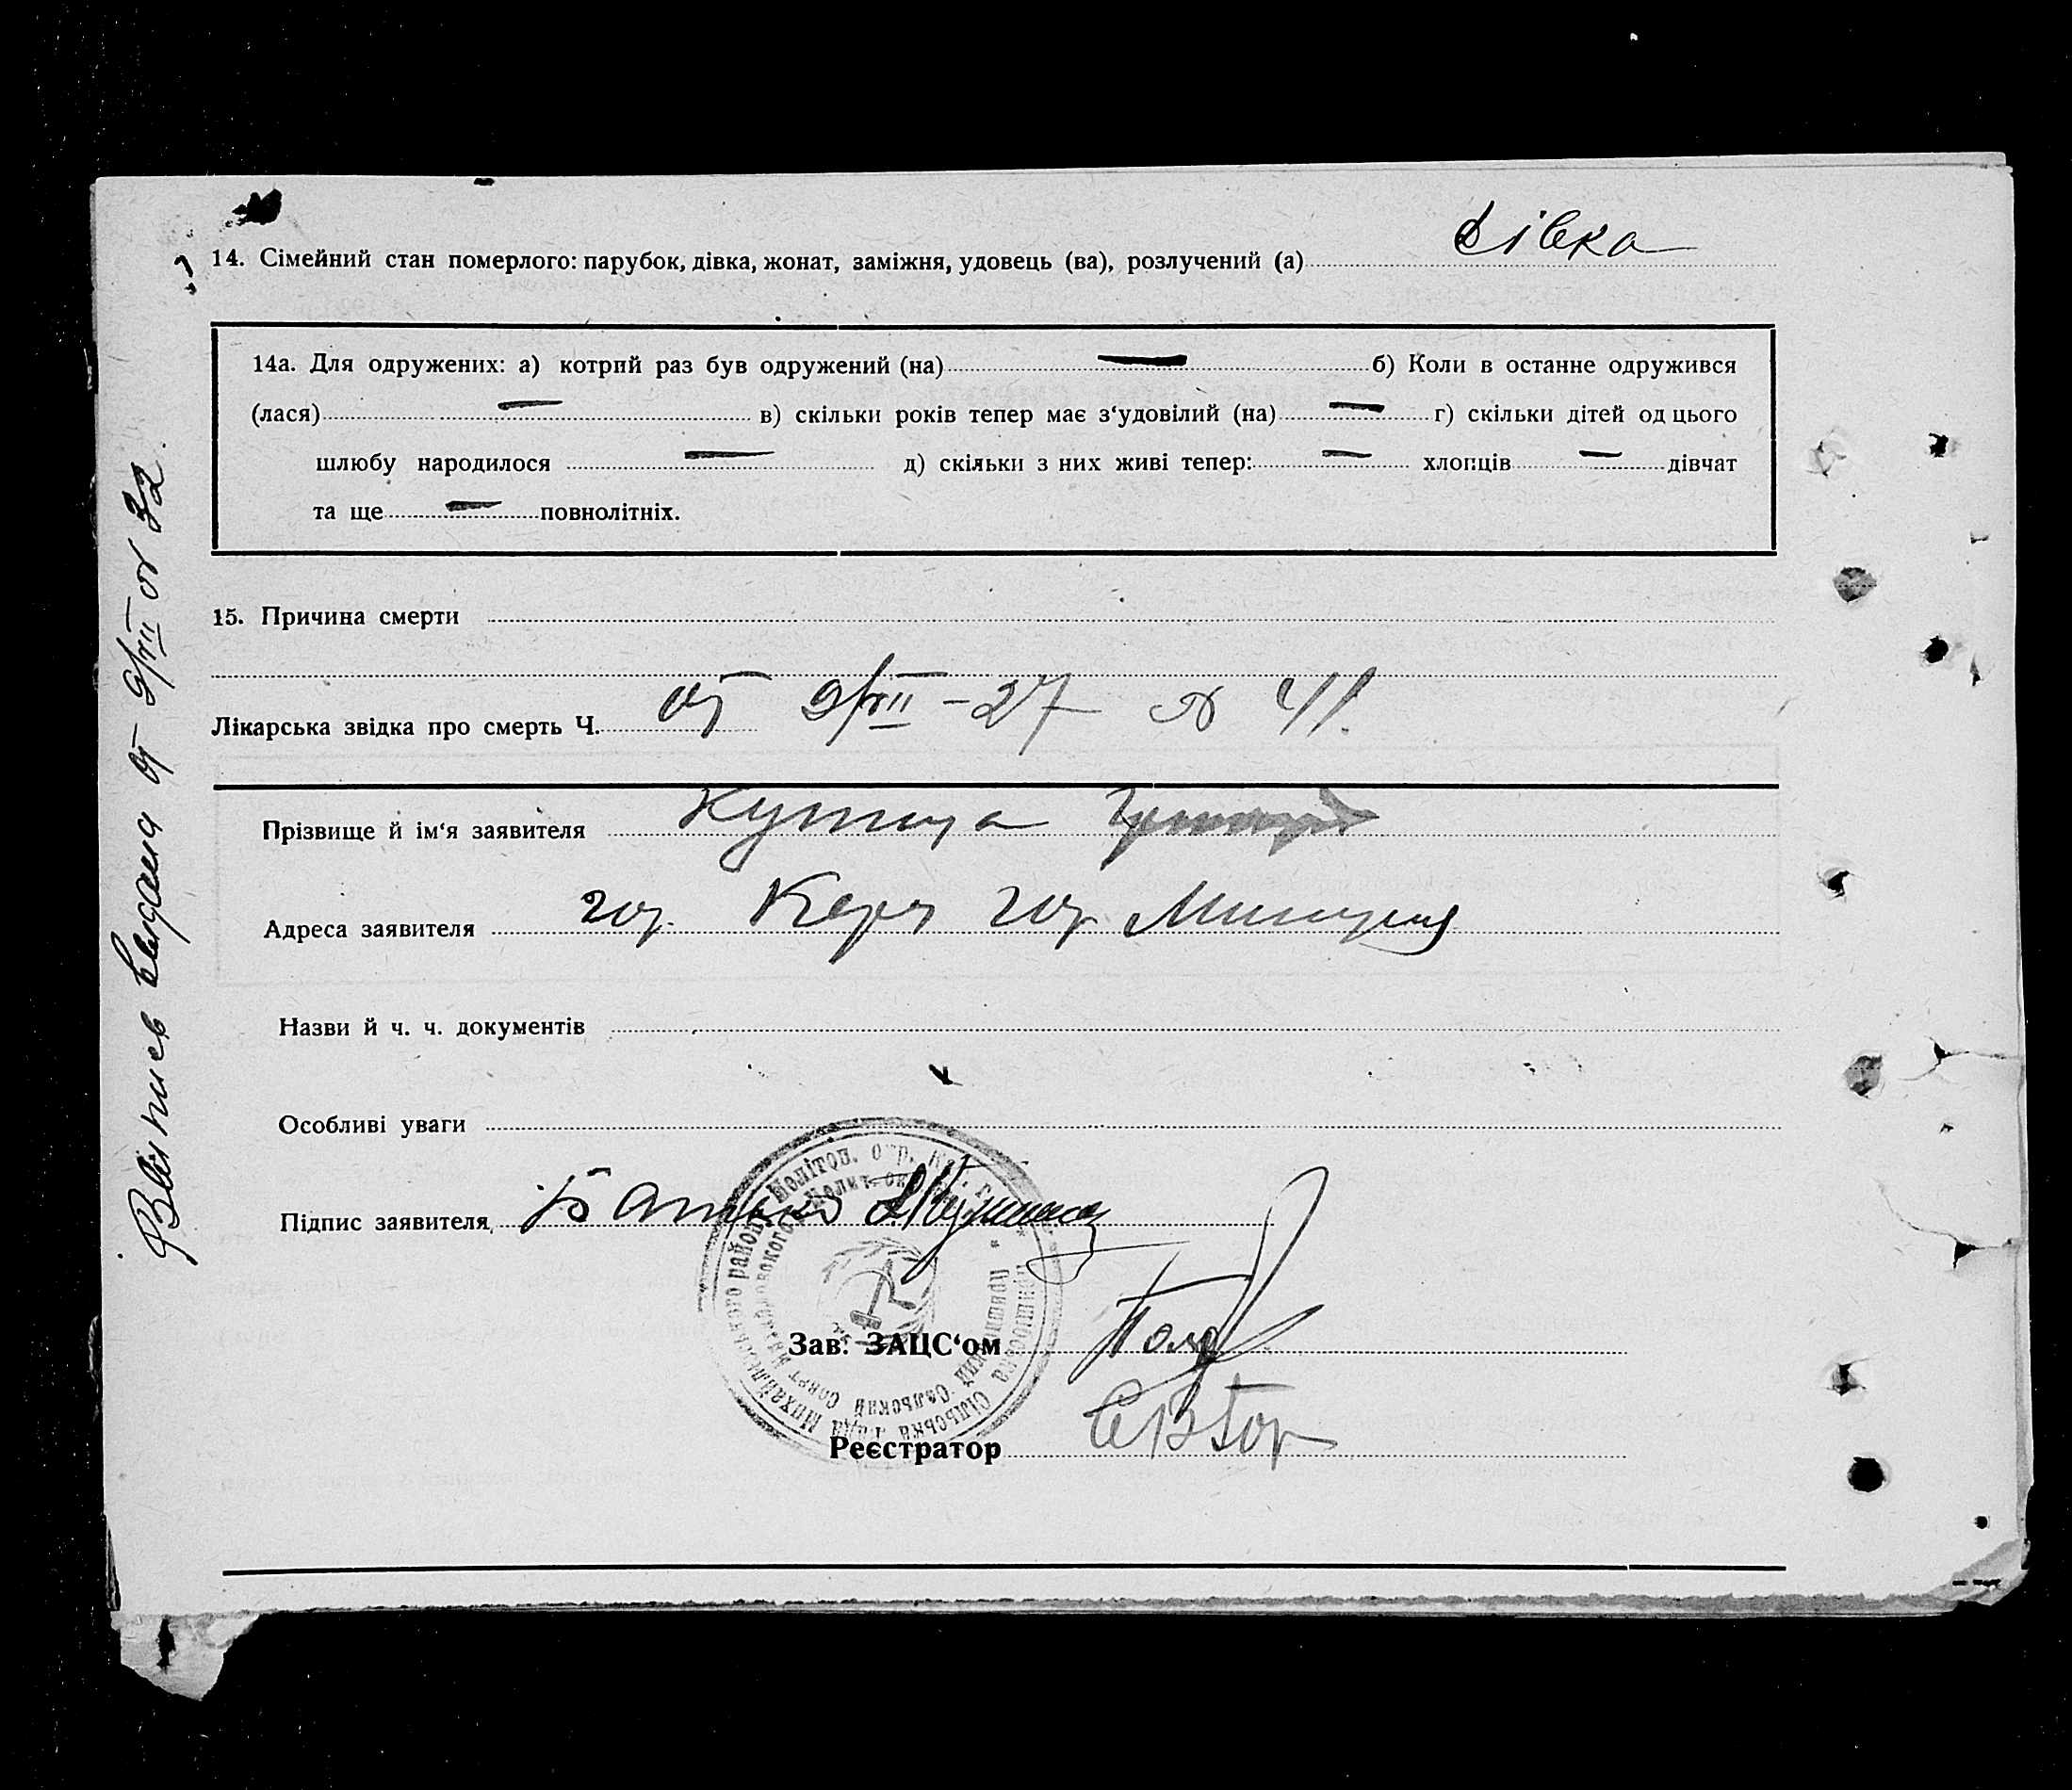 14. Сімейний стан померлого: парубок, дівка, жонат, заміжня, удовець (ва), розлучений (а) дівка
14а. Для одружених: а) котрий раз був одружений (на) — б) Коли в останне одружився
(лася) — в) скільки років тепер має з‘удовілий (на) — г) скільки дітей од цього
шлюбу народилося — д) скільки з них живі тепер: — хлопців — дівчат
та ще — повнолітніх.
15. Причина смерти
Лікарська звідка про смерть Ч. от 9/VII - 27 № 41.
Прізвище й ім‘я заявителя
Адреса заявителя гор. Керч гор.
Назви й ч. ч. документів
Особливі уваги
Підпис заявителя Батько
Зав. ЗАЦС‘ом
Реєстратор
Выпись выдана от 9/VII № 32.